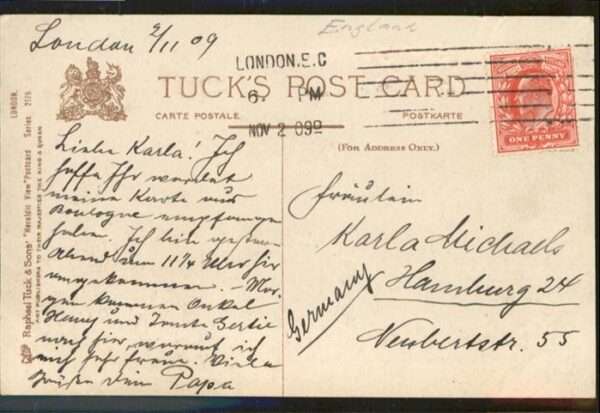 London 2/11 09
England
LONDON.E.C
6. PM
NOV 2 09
TUCK'S POST CARD
CARTE POSTALE.
POSTKARTE
(FOR ADDRESS ONLY.)
ONE PENNY
LONDON.
Raphael Tuck & Sons' "Heraldic View" Postcard Series 2175
ART PUBLISHERS TO THEIR MAJESTIES THE KING & QUEEN
Liebe Karla! Ich
hoffe Ihr werdet
meine Karte aus
Boulogne empfangen
haben. Ich bin gestern
Abend um 11¼ Uhr hier
angekommen. – Mor-
gen kommen Onkel
Henry und Tante Gertie
nach hier, worauf ich
mich sehr freue. Viele
Grüßen Dein Papa
Fräulein
Karla Michaels
Hamburg 24
Neubertstr. 55
Germany